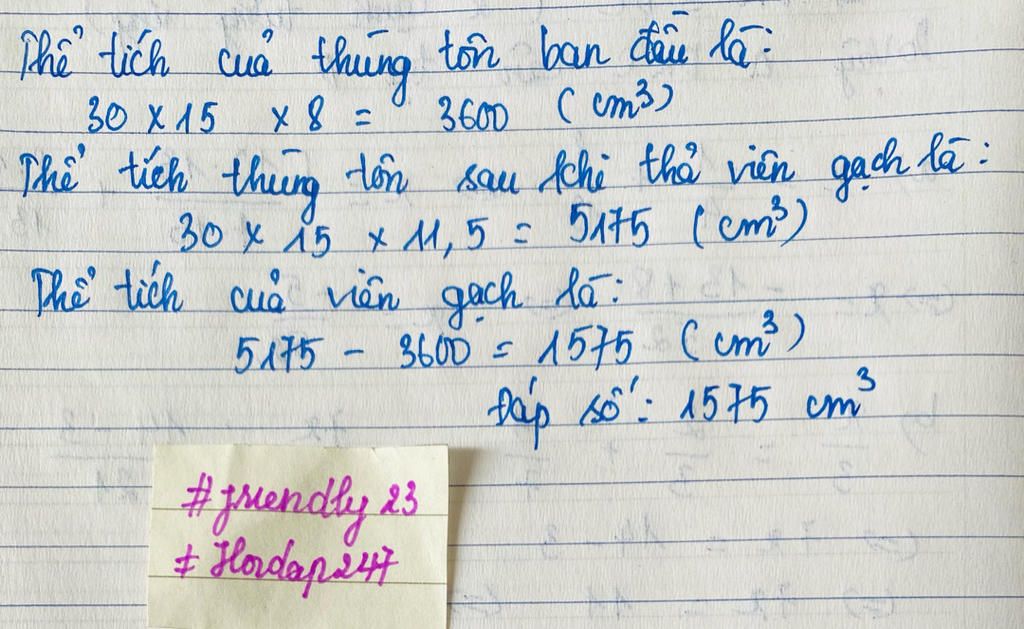 Thể tích của thùng tôn ban đầu là:
30 x 15 x 8 = 3600 (cm³)
Thể tích thùng tôn sau khi thả viên gạch là:
30 x 15 x 11,5 = 5175 (cm³)
Thể tích của viên gạch là:
5175 - 3600 = 1575 (cm³)
Đáp số: 1575 cm³
#friendly23
#Hoidap247